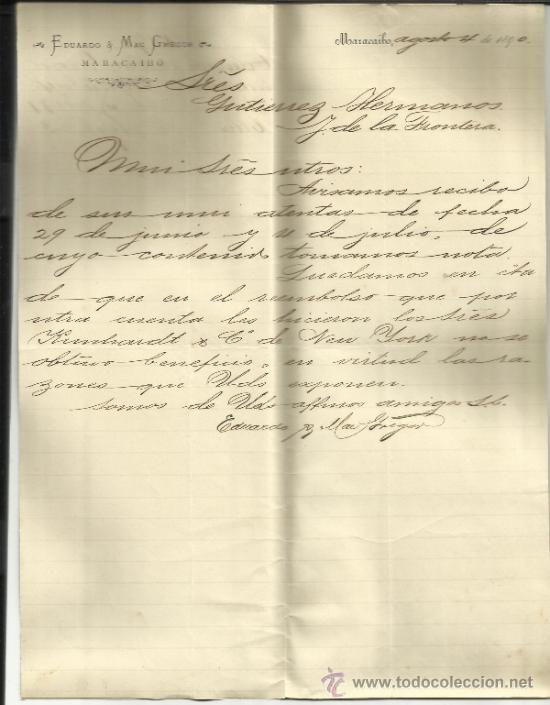 Eduardo & Mac Gregor
MARACAIBO
Maracaibo, agosto 4 de 1890.
Srēs
Gutierrez Hermanos.
J. de la Frontera.
Mui srēs ntros:
Avisamos recibo
de sus mui atentas de fecha
29 de junio y 4 de julio, de
cuyo contenido tomamos nota.
Quedamos en cuenta
de que en el reembolso que por
ntra cuenta les hicieron los srēs
Kunhardt & Cª de New York no se
obtuvo beneficio, en virtud las ra-
zones que Uds exponen.
Somos de Uds affmos amigos S.S.
Eduardo & Mac Gregor
www.todocoleccion.net